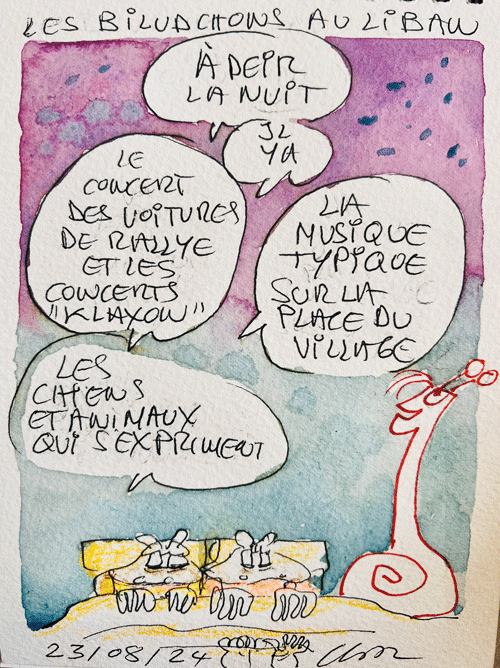 LES BILUDCHONS AU LIBAN
À DEIR
LA NUIT
IL
YA
LE
CONCERT
DES VOITURES
DE RALLYE
ET LES
CONCERTS
"KLAXON"
LA
MUSIQUE
TYPIQUE
SUR LA
PLACE DU
VILLAGE
LES
CHIENS
ET ANIMAUX
QUI S'EXPRIMENT
23/08/24